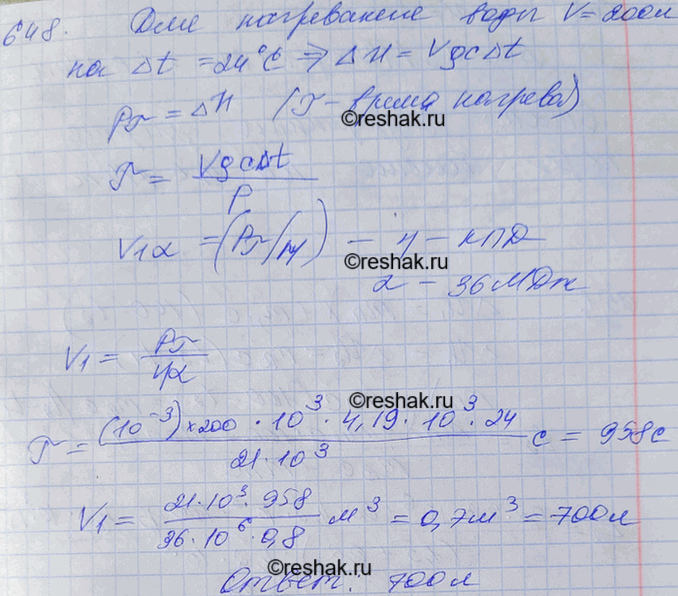 648. Для нагревание воды V = 200л
на Δt = 24°C ⇒ ΔH = VρcΔt
Pτ = ΔH (τ - время нагрева)
©reshak.ru
τ = VρcΔt / P
V₁α = (Pτ/η) - η - КПД
©reshak.ru
α - 36 МДж
V₁ = Pτ / ηα
©reshak.ru
τ = (10⁻³) × 200 · 10³ · 4,19 · 10³ · 24 / 21 · 10³ c = 958c
V₁ = 21 · 10³ · 958 / 36 · 10⁶ · 0,8 м³ = 0,7м³ = 700л
©reshak.ru
Ответ: 700л